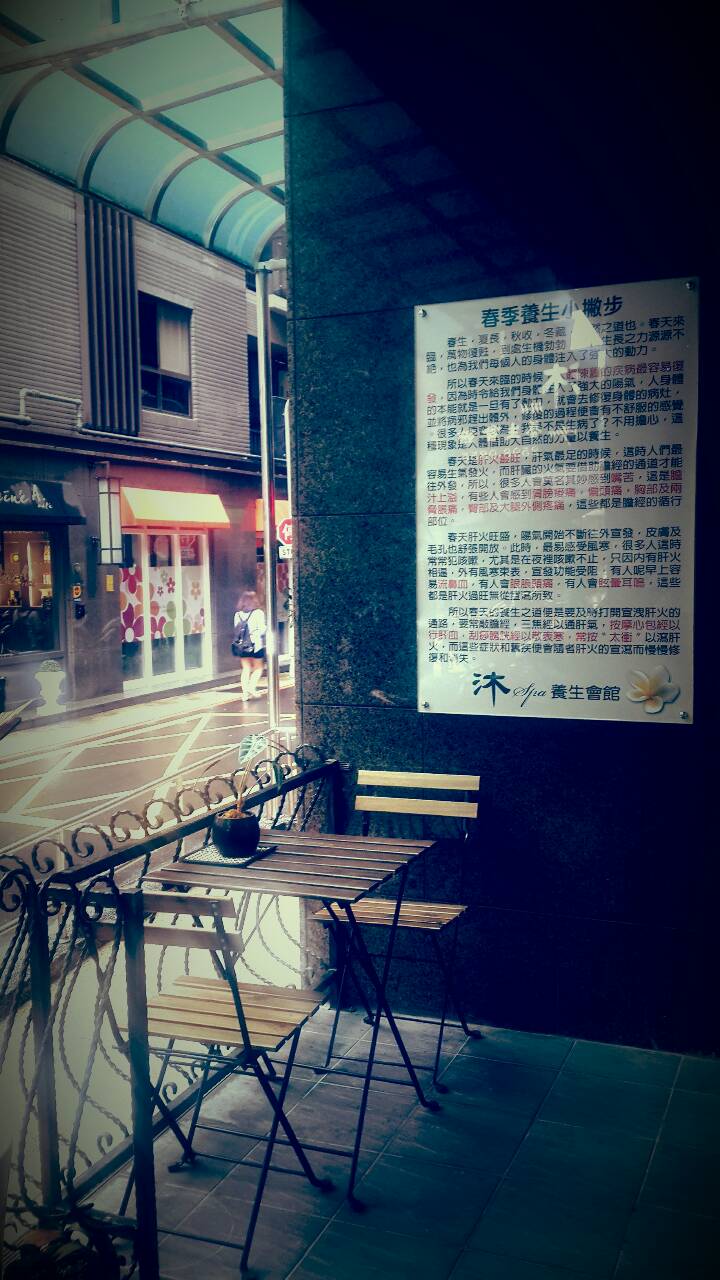 春季養生小撇步
春生，夏長，秋收，冬藏 然之道也。春天來
臨，萬物復甦，到處生機勃勃 生長之力源源不
絕，也為我們每個人的身體注入了強大的動力。
所以春天來臨的時候， 的疾病最容易復
發，因為時令給我們身體 了強大的陽氣，人身體
的本能就是一旦有了 就會去修復身體的病灶，
並將病邪趕出體外，修復的過程便會有不舒服的感覺
，很多人 我 不是生病了？不用擔心，這
種現象是人體借助大自然的力量以養生。
春天是肝火最旺，肝氣最足的時候，這時人們最
容易生氣發火，而肝臟的火氣要借助膽經的通道才能
往外發，所以，很多人會莫名其妙感到嘴苦，這是膽
汁上溢，有些人會感到肩膀疼痛，偏頭痛，胸部及兩
脅脹痛，臀部及大腿外側疼痛，這些都是膽經的循行
部位。
春天肝火旺盛，陽氣開始不斷往外宣發，皮膚及
毛孔也舒張開放。此時，最易感受風寒，很多人這時
常常犯咳嗽，尤其是在夜裡咳嗽不止，只因內有肝火
相逼，外有風寒束表，宣發功能受阻，有人呢早上容
易流鼻血，有人會眼脹頭痛，有人會眩暈耳鳴，這些
都是肝火過旺無從謹瀉所致。
所以春天的養生之道便是要及時打開宣洩肝火的
通路，要常敲膽經，三焦經以通肝氣，按摩心包經以
行肝血，刮痧膀胱經以散表寒，常按“太衝”以瀉肝
火，而這些症狀和舊疾便會隨者肝火的宣瀉而慢慢修
復和消失。
沐 Spa 養生會館
STOP